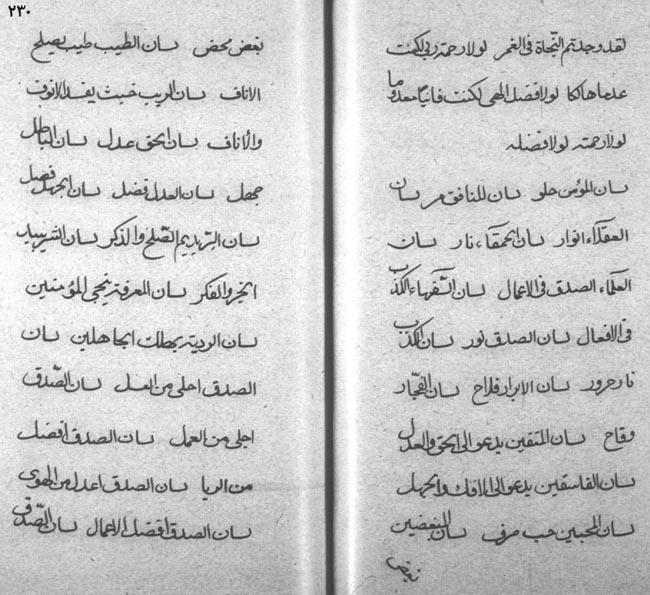 ٢٣٠
لقد وجدتم النجاة فی الغمر لولا رحمة ربی لکنت
هالکا لولا فضل الهی لکنت فانیا معدوما
لولا رحمته لولا فضله
لسان المؤمن حلو لسان المنافق مر لسان
العقلاء انوار لسان الحمقاء نار لسان
العلماء الصدق فی الاعمال لسان السفهاء الکذب
فی الافعال لسان الصدق نور لسان الکذب
نار حرور لسان الابرار فلاح لسان الفجار
وقاح لسان المتقین یدعو الی الحق والعدل
لسان الفاسقین یدعو الی الافک والجهل
لسان المحبین حب صرف لسان المبغضین
بغض
بغض محض لسان الطیب طیب یصلح
الاناف لسان المریب خبیث یفسد الانوف
والأناف لسان الحق عدل لسان الباطل
جهل لسان العدل فضل لسان الجهل فصل
لسان البر یدیم الصلح والذکر لسان الشر یبید
الخیر والفکر لسان المعرفة ینجی المؤمنین
لسان یهلک الجاهلین لسان
الصدق احلی من العسل لسان الصدق
اجلی من العمل لسان الصدق افضل
من الریا لسان الصدق اعدل من الهوی
لسان الصدق افضل الاعمال لسان الصدق